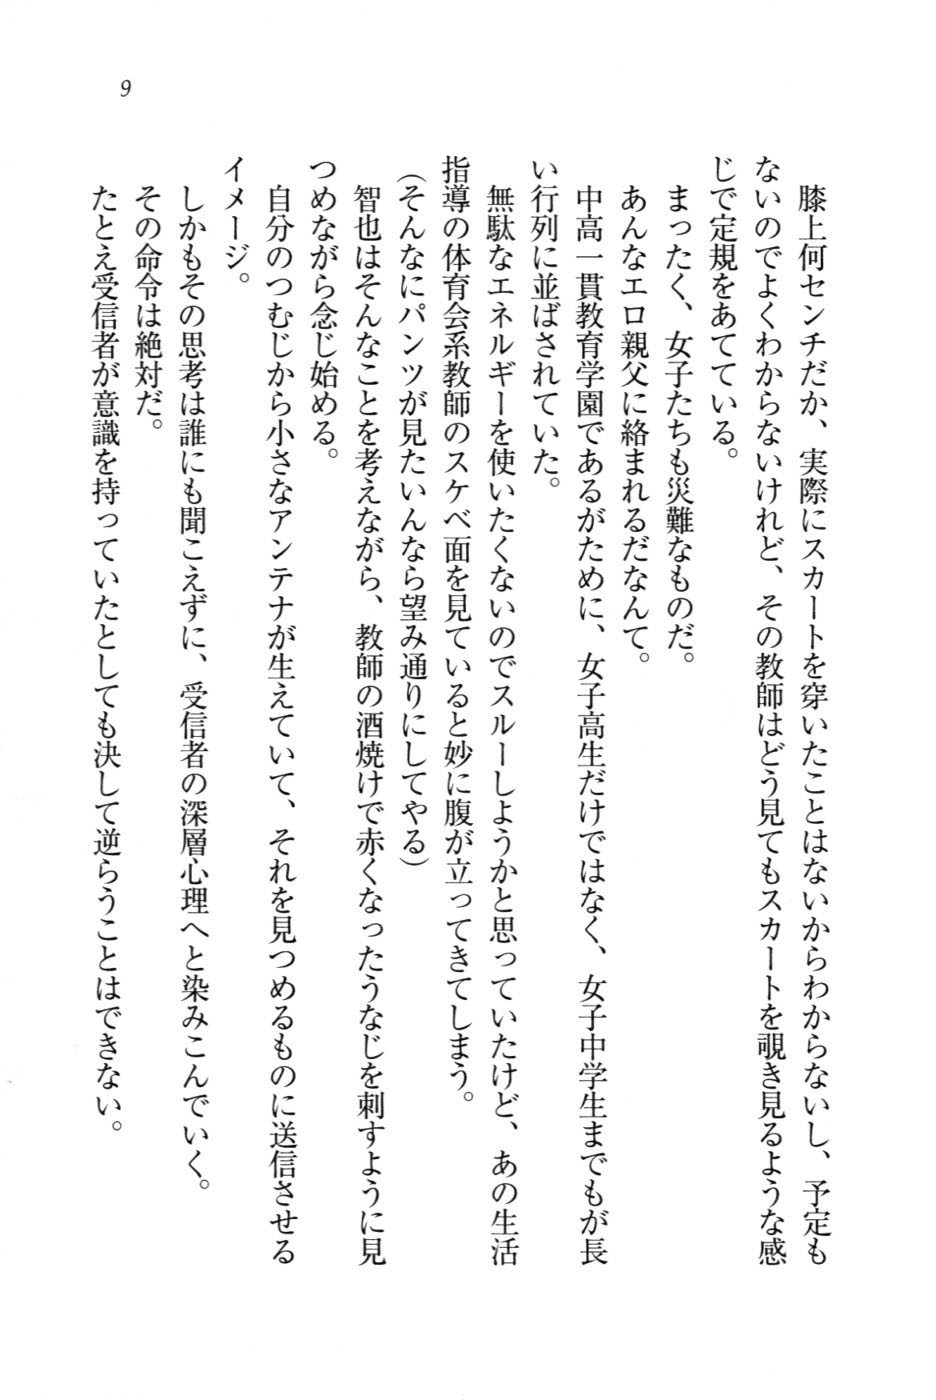 9
膝上何センチだか、実際にスカートを穿いたことはないからわからないし、予定も
ないのでよくわからないけれど、その教師はどう見てもスカートを覗き見るような感
じで定規をあてている。
まったく、女子たちも災難なものだ。
あんなエロ親父に絡まれるだなんて。
中高一貫教育学園であるがために、女子高生だけではなく、女子中学生までもが長
い行列に並ばされていた。
無駄なエネルギーを使いたくないのでスルーしようかと思っていたけど、あの生活
指導の体育会系教師のスケベ面を見ていると妙に腹が立ってきてしまう。
(そんなにパンツが見たいんなら望み通りにしてやる)
智也はそんなことを考えながら、教師の酒焼けで赤くなったうなじを刺すように見
つめながら念じ始める。
自分のつむじから小さなアンテナが生えていて、それを見つめるものに送信させる
イメージ。
しかもその思考は誰にも聞こえずに、受信者の深層心理へと染みこんでいく。
その命令は絶対だ。
たとえ受信者が意識を持っていたとしても決して逆らうことはできない。